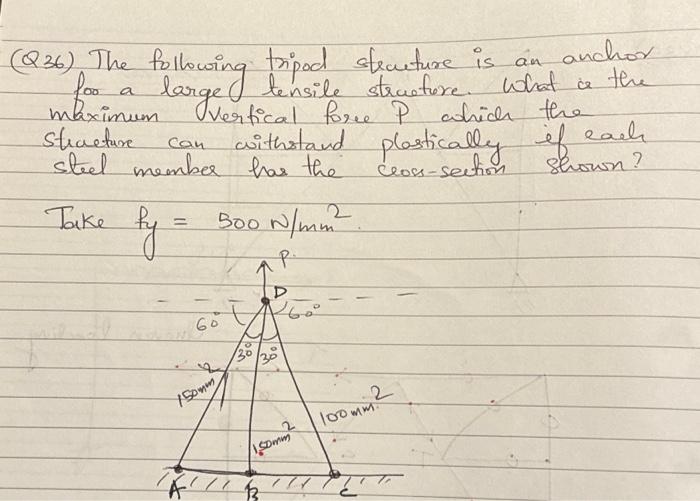 (Q36) The following tripod structure is an anchor
for a large tensile structure. What is the
maximum vertical force P which the
structure can withstand plastically if each
steel member has the cross-section shown?
Take fy = 500 N/mm²
P.
D
60° 60°
30° 30°
150mm²
100mm²
150mm²
A B C